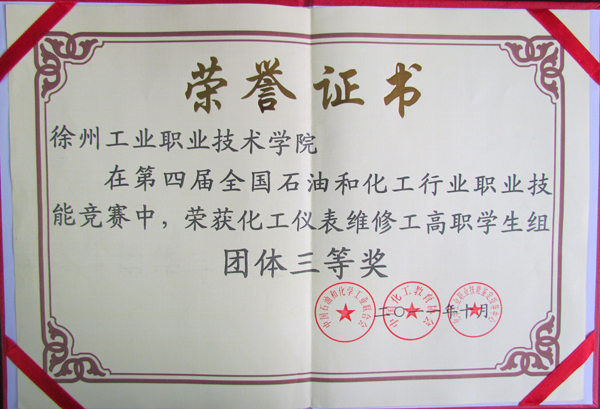 荣誉证书
徐州工业职业技术学院
在第四届全国石油和化工行业职业技
能竞赛中，荣获化工仪表维修工高职学生组
团体三等奖
中国石油和化学工业联合会
中国化工教育协会
二〇一一年十月